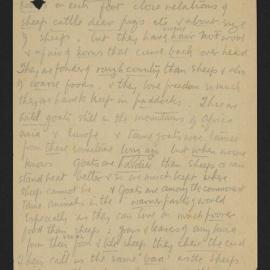 in each foot close relations of
sheep cattle deer pigs etc + about size
of sheep - but they have hair not wool
+ a pair of horns that curve back over head
They are fonder of rough country than sheep + also
of coarse foods. + they love freedom so much
they are hard to keep in paddocks. There are
wild goats still in the mountains of Africa
Asia + Europe + tame goats was tamed
from these sometime long ago but when no one
knows. Goats are hardier than sheep +
stand heat better + so are much kept where
sheep cannot be. + Goats are among the commonest
Tame animals in the warmer parts of world
Especially as they can live on much poorer
food than sheep; grass + leaves of any kind
form their food + like sheep they chew the cud
Their call is the same 'baa' as the sheep.